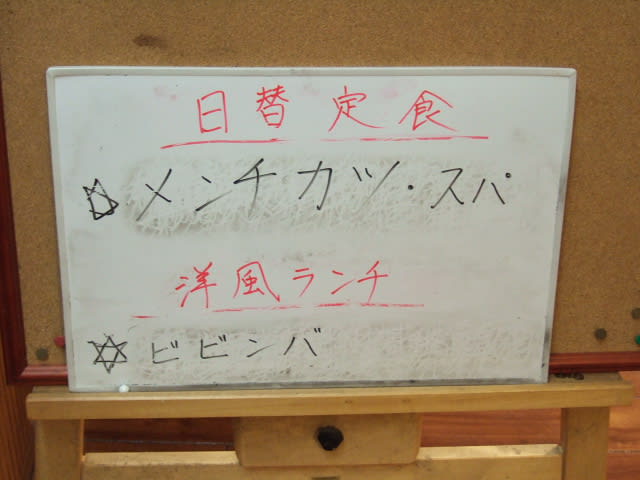 日替定食
☆メンチカツ・スパ
洋風ランチ
☆ビビンバ